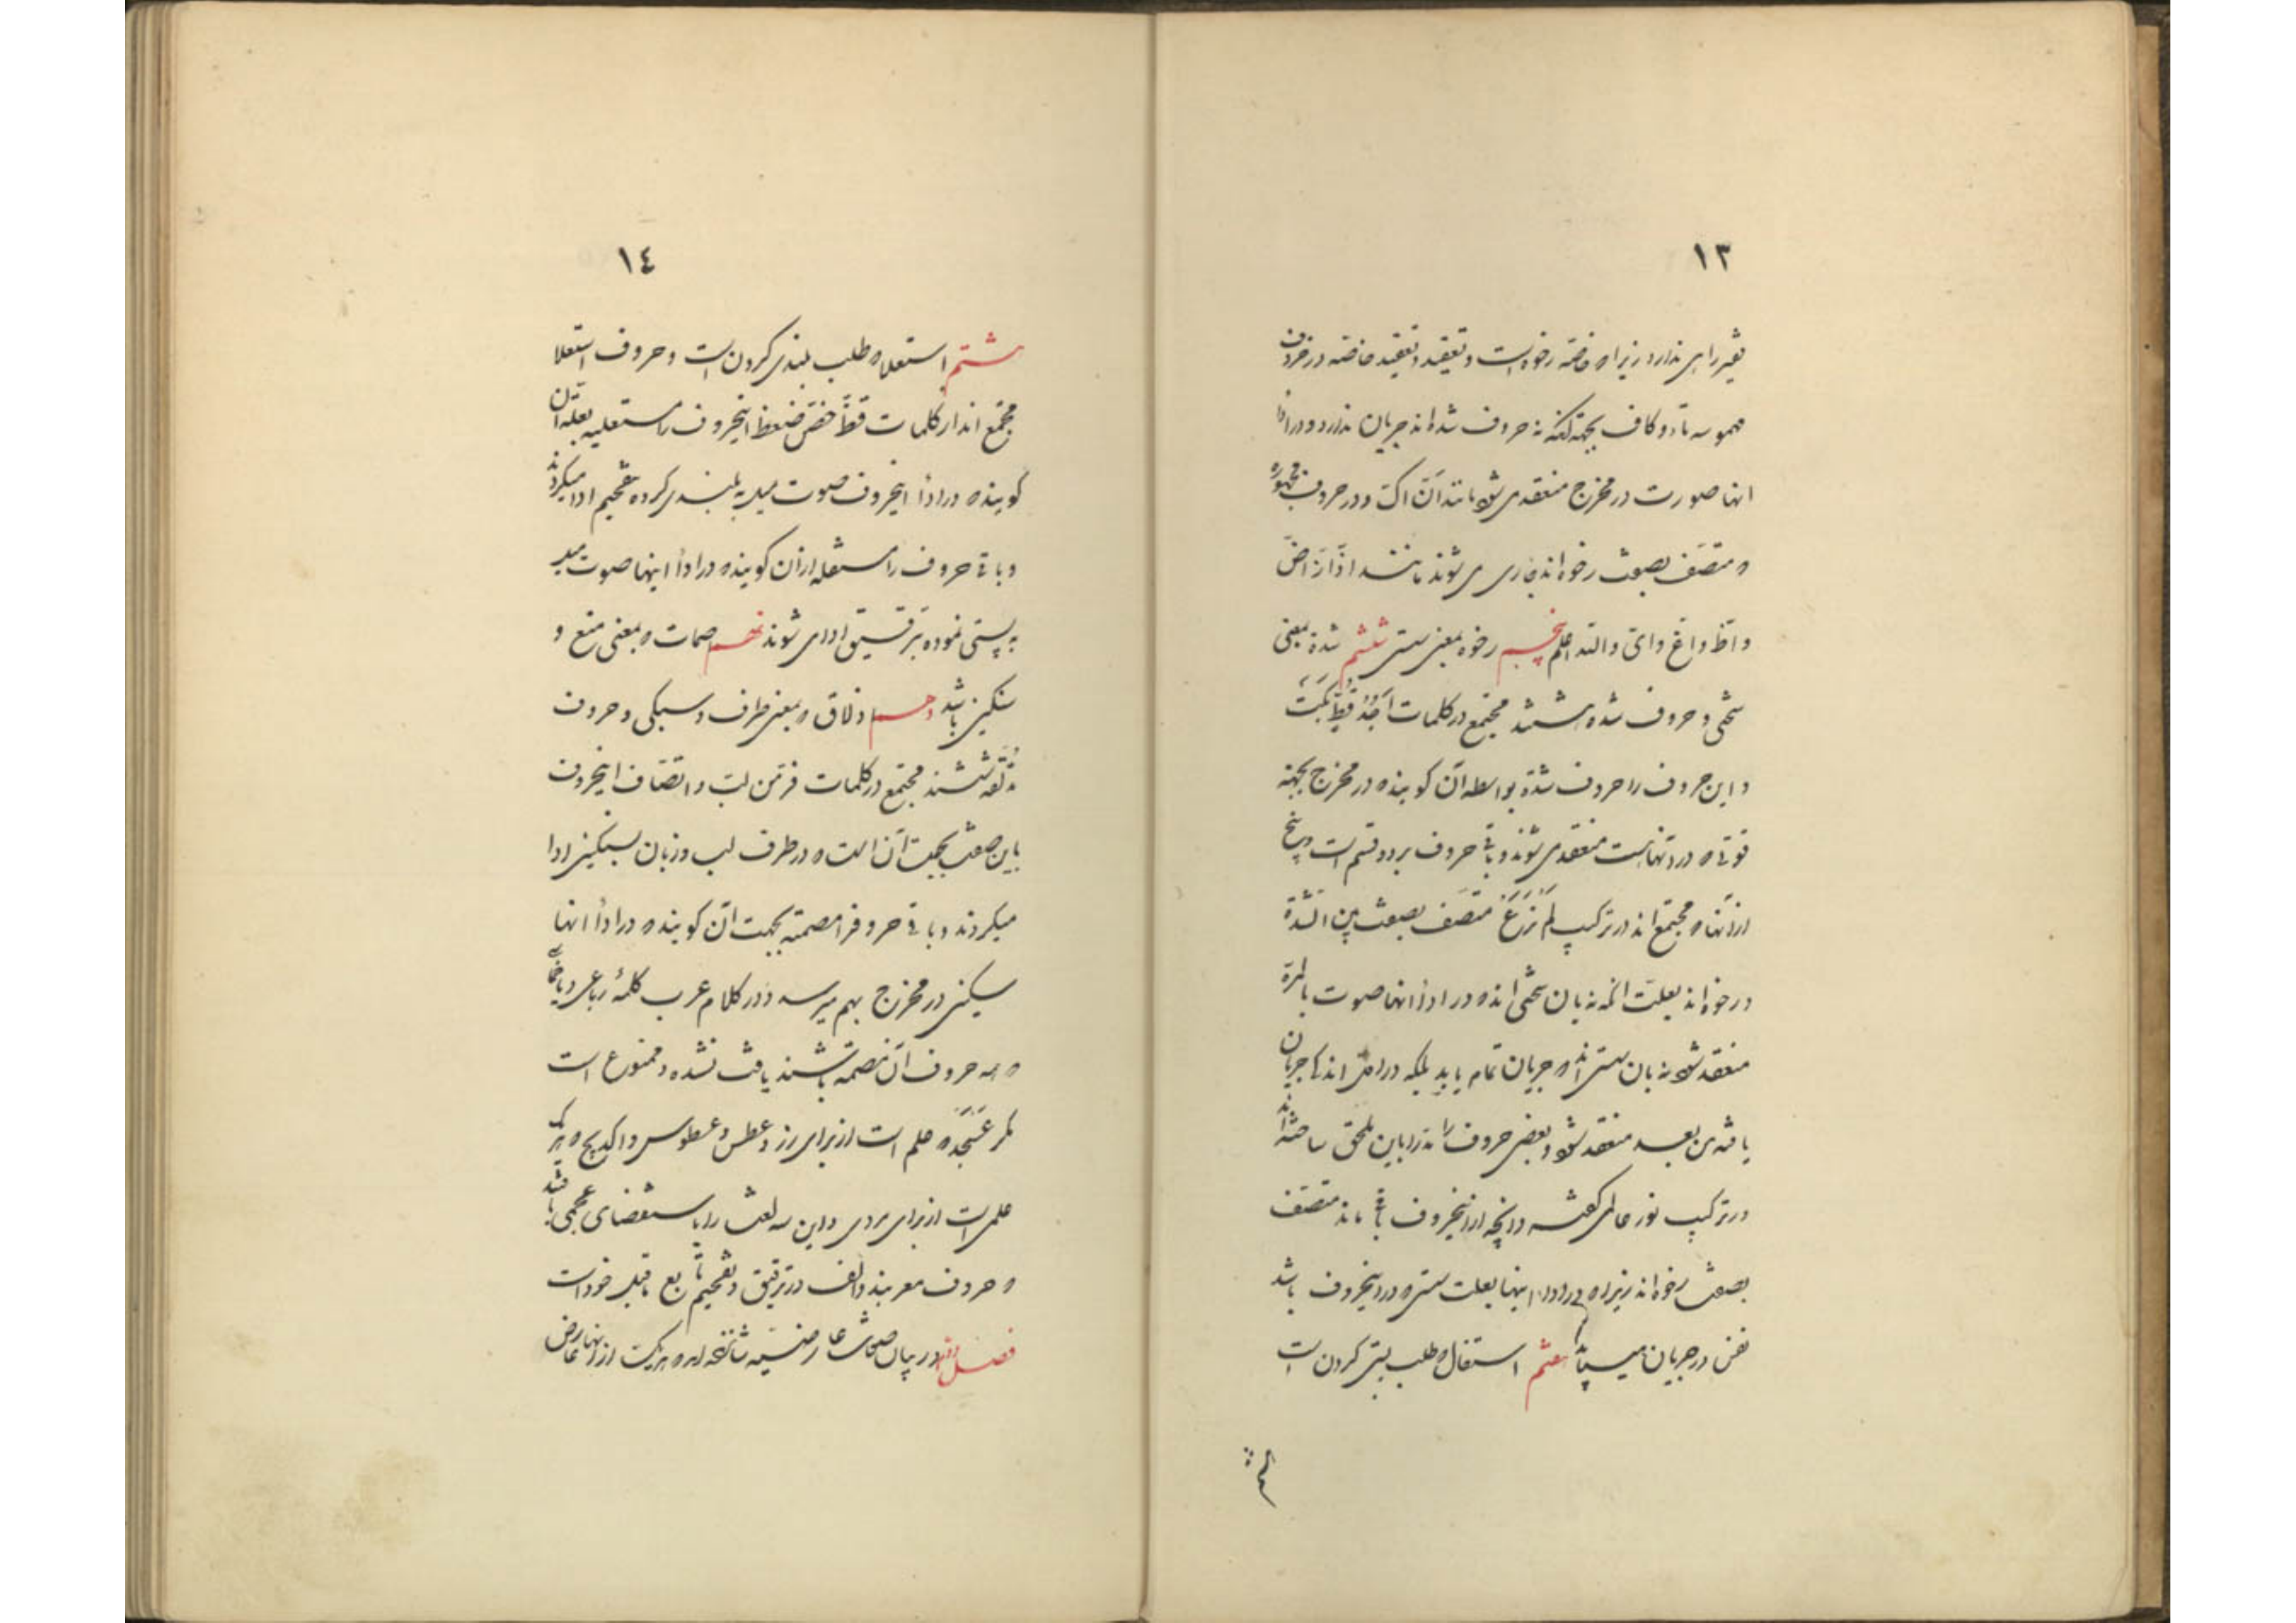 ١٣
تغییر راهی ندارد زیرا که خاصّه رخوه است و تعقید و تعقید خاصّه در حروف
مهموسه تاء و کاف بجهة آنکه حروف شدّه اند جریان ندارد و در ادا
انها صورت در مخرج منعقد می شود مانند اَتْ اَکْ و در حروف مجهوره
که متّصف بصفت رخوه اند جاری می شوند مانند اَذْ اَزْ اَضْ
و اَظْ و اَغْ و اَیْ والله اعلم پنجم رخوه بمعنی سستی ششم شدّة بمعنی
سختی و حروف شدّه هشتند مجتمع در کلمات اَجِدُ قَطٍ بَکَتْ
و این حروف را حروف شدّة بواسطه آن کویند که در مخرج بجهة
قوّتی که در انهاست منعقد می شوند و باقی حروف بر دو قسم است و پنج
از انها که مجتمع اند در ترکیب لَمْ نَرَعْ متّصف بصفت بین الشدّة
و رخوه اند بعلّت انکه نه بان سختی اند که در ادأ انها صوت بالمرّة
منعقد شود نه بان سستی اند که جریان تمام یابد بلکه در اوّل اندک جریان
یافته من بعد منعقد شود و بعضی حروف را نیز باین ملحق ساخته اند
در ترکیب نور عالم کفته و انچه از اینحروف باقی ماند متّصف
بصفت رخوه اند زیرا که در ادأ اینها بعلت سستی که در اینحروف باشد
نفس در جریان میباشد هفتم استفال که طلب پستی کردن است
١٤
هشتم استعلا که طلب بلندی کردن است و حروف استعلا
مجتمع اند در کلمات قظ خص ضغط اینحروف را مستعلیه بعلّة آن
کویند که در ادأ اینحروف صوت میل به بلندی کرده بتفخیم ادا میکردند
و باقی حروف را مستفله از آن کویند که در ادأ اینها صوت میل
به پستی نموده بترقیق ادا می شوند نهم اصمات که بمعنی منع و
سنکین باشد دهم اذلاق که بمعنی طرف و سبکی و حروف
مذلقه ششند مجتمع در کلمات فرّ من لبّ و اتّصاف اینحروف
باین صفت بجهت آن است که در طرف لب و زبان بسبکی ادا
میکردند و باقی حروف را مصمته بجهت آن کویند که در ادأ انها
سنکینی در مخرج بهم میرسد و در کلام عرب کلمهٔ رباعی و یا خماسی
که همه حروف آن مصمته باشند یافت نشده و ممنوع است
مکر عَسْجَد که علم است از برای زر و عطس و عطوس و اکدیج که هر یک
علم است از برای مردی و این سه لغت را با ستقصای عجمی یافته
که حروف معربند و الف در ترقیق و تفخیم تابع ماقبل خود است
فصل در بیان صفات عارضیّه شانزده که هر یک از انها عارض